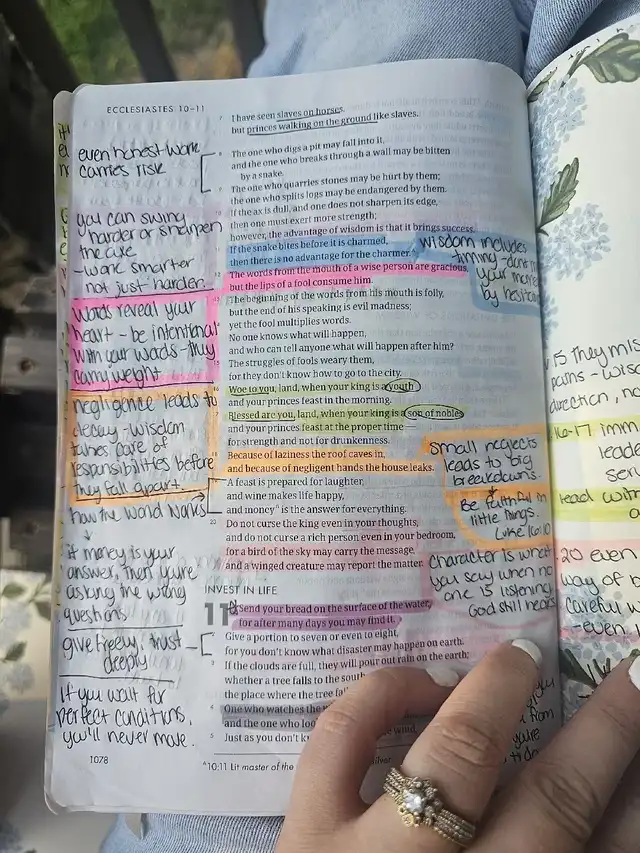 ECCLESIASTES 10–11
7 I have seen slaves on horses,
but princes walking on the ground like slaves.
8 The one who digs a pit may fall into it,
and the one who breaks through a wall may be bitten
by a snake.
9 The one who quarries stones may be hurt by them;
the one who splits logs may be endangered by them.
10 If the ax is dull, and one does not sharpen its edge,
then one must exert more strength;
however, the advantage of wisdom is that it brings success.
11 If the snake bites before it is charmed,
then there is no advantage for the charmer.
12 The words from the mouth of a wise person are gracious,
but the lips of a fool consume him.
13 The beginning of the words from his mouth is folly,
but the end of his speaking is evil madness;
yet the fool multiplies words.
No one knows what will happen,
and who can tell anyone what will happen after him?
15 The struggles of fools weary them,
for they don't know how to go to the city.
16 Woe to you, land, when your king is a youth
and your princes feast in the morning.
Blessed are you, land, when your king is a son of nobles
and your princes feast at the proper time—
for strength and not for drunkenness.
18 Because of laziness the roof caves in,
and because of negligent hands the house leaks.
A feast is prepared for laughter,
and wine makes life happy,
and money is the answer for everything.
20 Do not curse the king even in your thoughts,
and do not curse a rich person even in your bedroom,
for a bird of the sky may carry the message,
and a winged creature may report the matter.
INVEST IN LIFE
11 Send your bread on the surface of the water,
for after many days you may find it.
2 Give a portion to seven or even to eight,
for you don't know what disaster may happen on earth.
3 If the clouds are full, they will pour out rain on the earth;
whether a tree falls to the south
the place where the tree
4 One who watches the
and the one who
5 Just as you don't
wind,
1078
A10:11 Lit master of the
even honest work
carries risk
you can swing
harder or sharpen
the axe
- work smarter
not just harder.
words reveal your
heart - be intentional
with your words - they
carry weight
negligence leads to
decay - wisdom
takes care of
responsibilities before
they fall apart
how the world works
if money is your
answer, then you're
asking the wrong
questions
give freely, trust
deeply
If you wait for
perfect conditions,
you'll never move.
wisdom includes
timing - don't
your
by
small neglects
leads to big
breakdowns.
Be faithful in
little things.
Luke 16:10
Character is what
you say when no
one is listening
God still hears
from
you're
v15 They
pains - 
direction,
16-17
lead with
20 even
way of
careful
- even